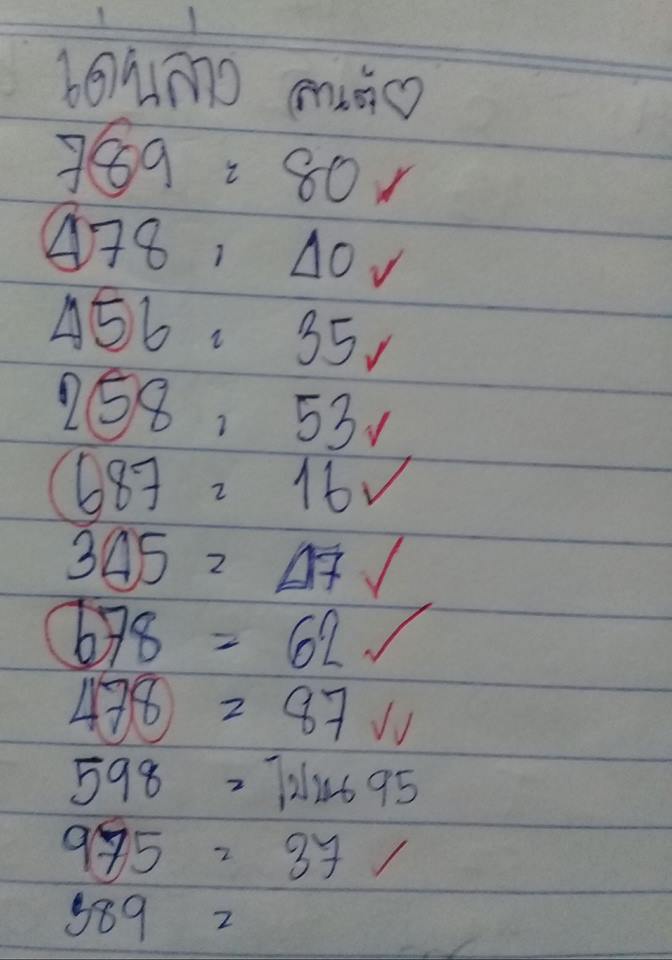 เด่นล่าง ลานต้า♡
789 = 80 ✓
478 , 40 ✓
456 = 35 ✓
258 , 53 ✓
687 = 16 ✓
345 = 47 ✓
678 = 62 ✓
478 = 87 ✓✓
598 = ไปบน 95
975 = 37 ✓
389 =